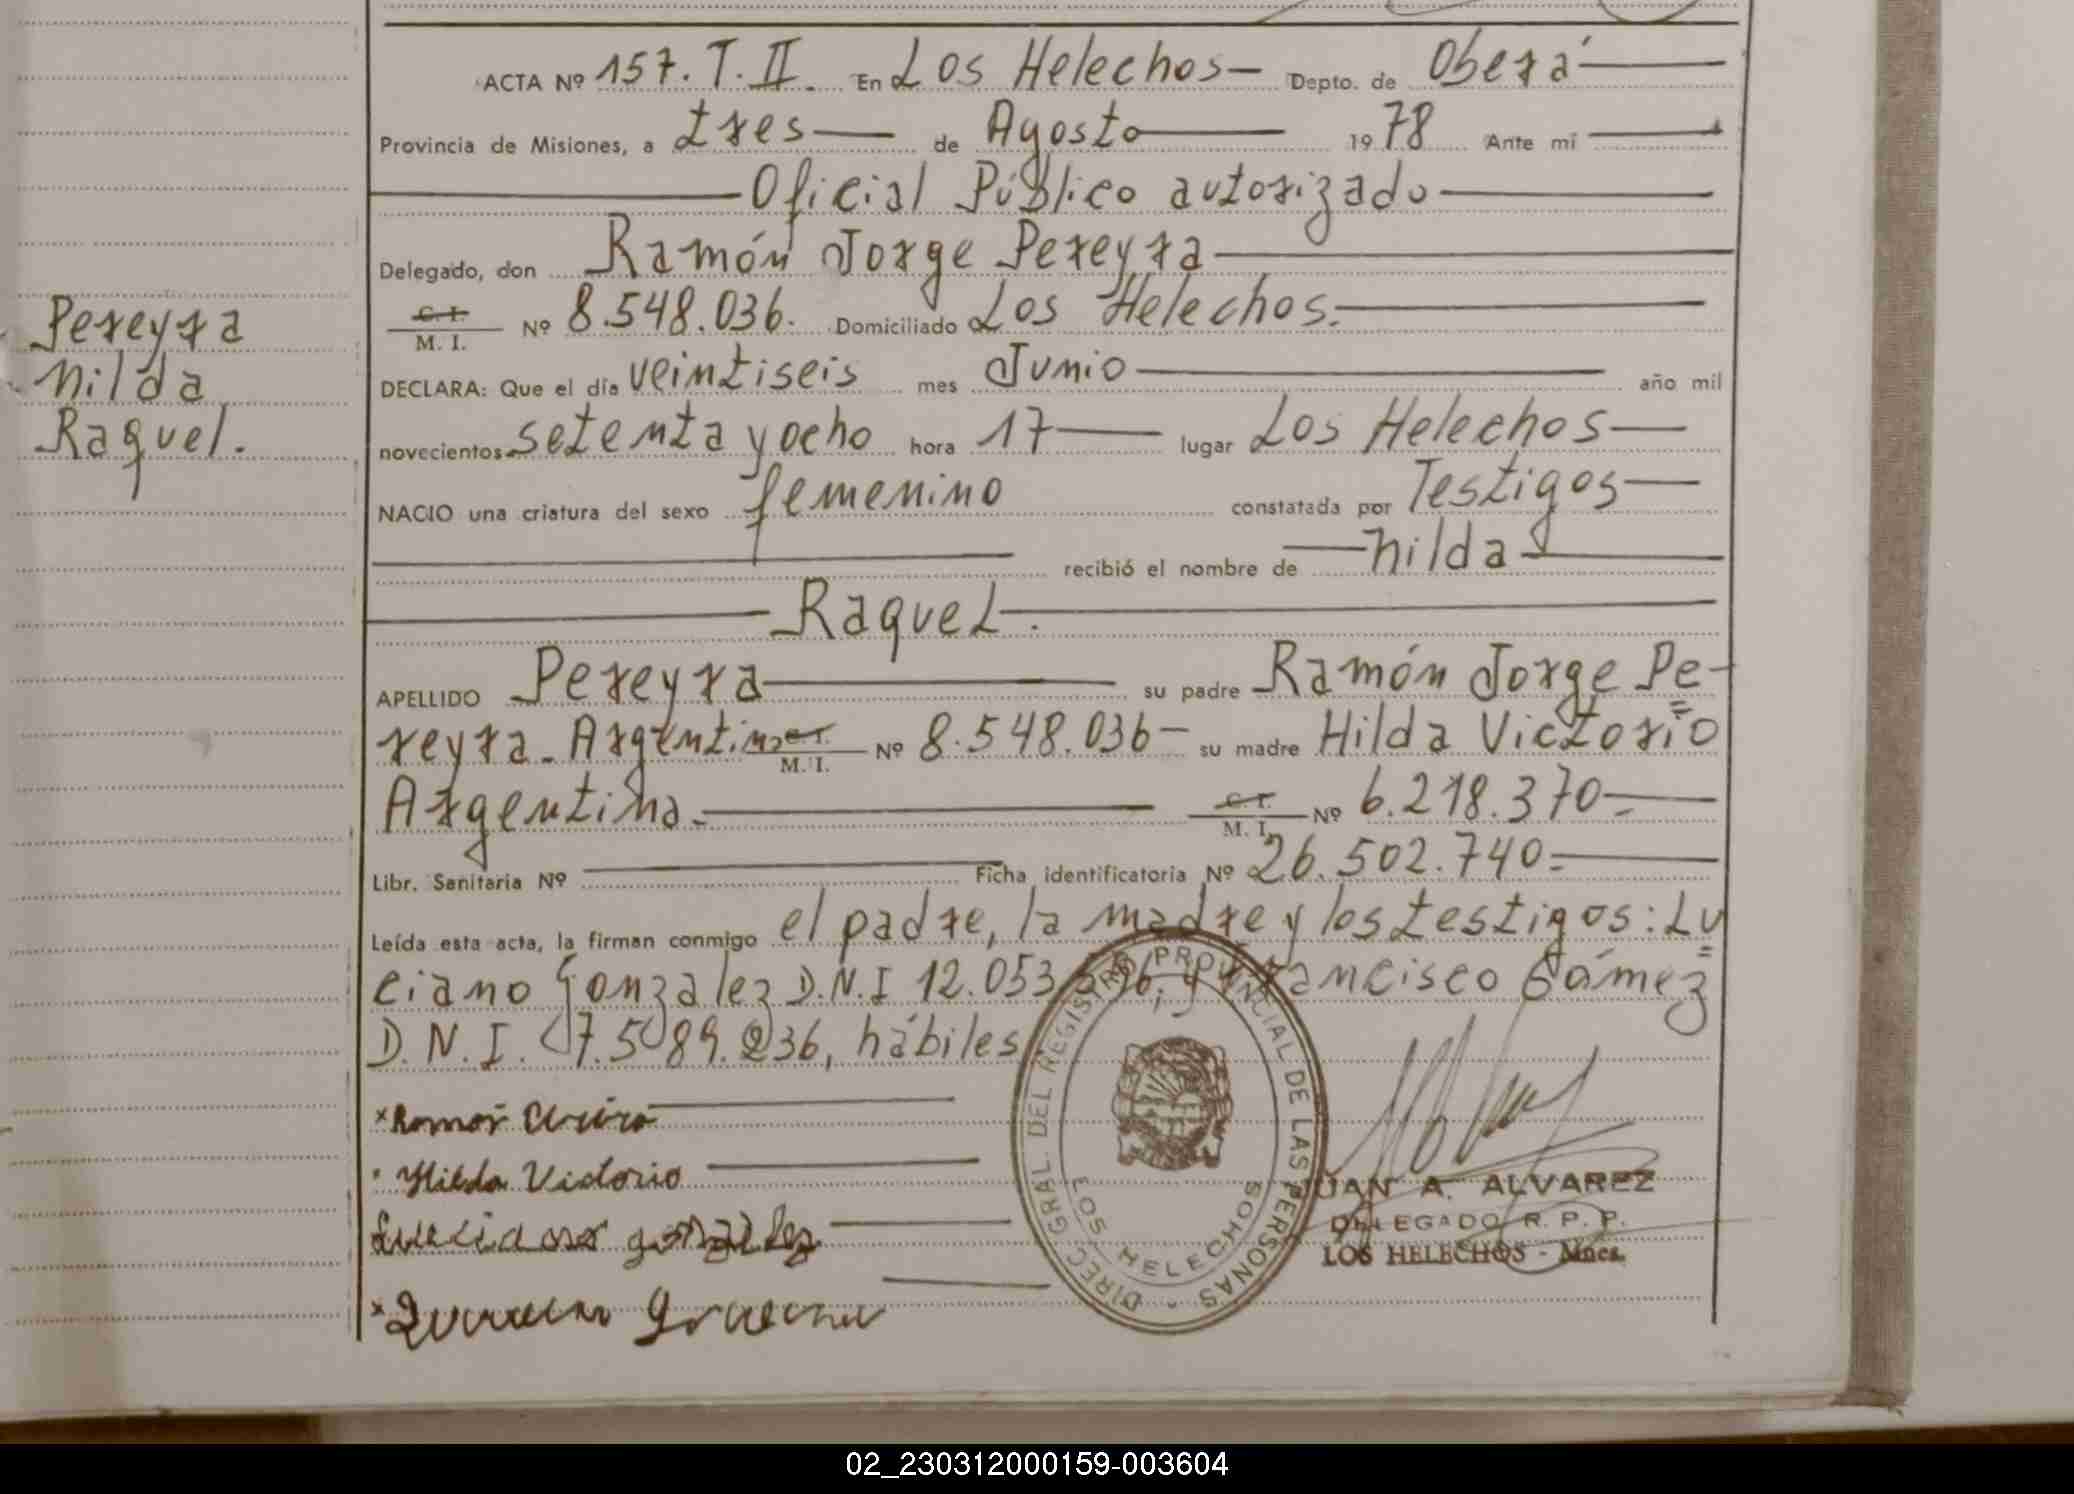 ACTA Nº 157. T. II. En Los Helechos Depto. de Oberá
Provincia de Misiones, a tres de Agosto 1978 Ante mi
Oficial Público autorizado
Delegado, don Ramón Jorge Pereyra
C. I. M. I. Nº 8.548.036. Domiciliado Los Helechos.
DECLARA: Que el día veintiseis mes Junio año mil
novecientos setenta y ocho hora 17 lugar Los Helechos
NACIO una criatura del sexo femenino constatada por Testigos
recibió el nombre de Nilda
Raquel.
APELLIDO Pereyra su padre Ramón Jorge Pe-
reyra. Argentino C. I. M. I. Nº 8.548.036 su madre Hilda Victorio
Argentina. C. I. M. I. Nº 6.218.370
Libr. Sanitaria Nº Ficha identificatoria Nº 26.502.740
Leída esta acta, la firman conmigo el padre, la madre y los testigos: Lu
ciano Gonzalez D.N.I 12.053 y Francisco Gómez
D.N.I. 7.589.236, hábiles
Pereyra
Nilda
Raquel.
Hilda Victorio
DIREC. GRAL. DEL REGISTRO PROVINCIAL DE LAS PERSONAS
LOS HELECHOS
JUAN A. ALVAREZ
DELEGADO R. P. P.
LOS HELECHOS - Mnes.
02_230312000159-003604